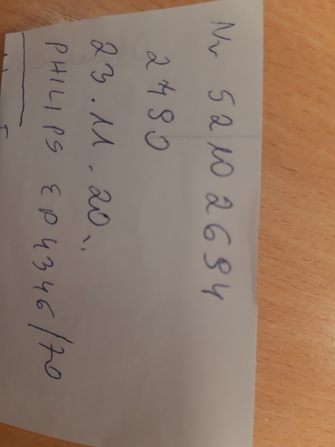 Nr 52102694
2490
23.11.20
PHILIPS EP4346/70